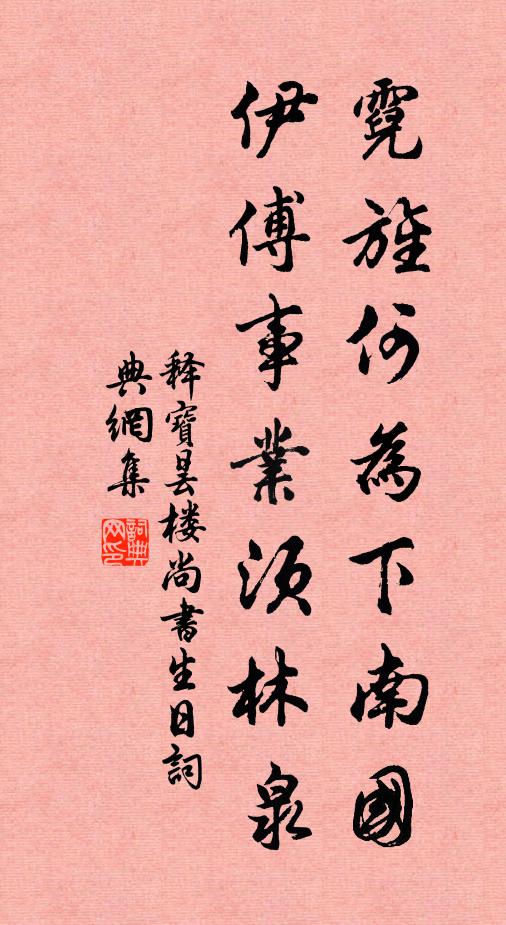 霓旌何為下南國
伊傅事業須林泉
释寶昙楼尚書生日詞
典網集
詞典網印